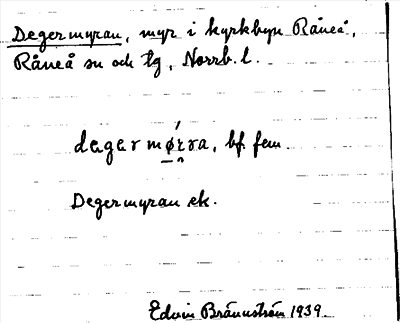 Degermyran, myr i kyrkbyn Råneå,
Råneå sn och tg, Norrb. l.
degermørra, bf. fem.
Degermyran ek.
Edvin Brännström 1939.